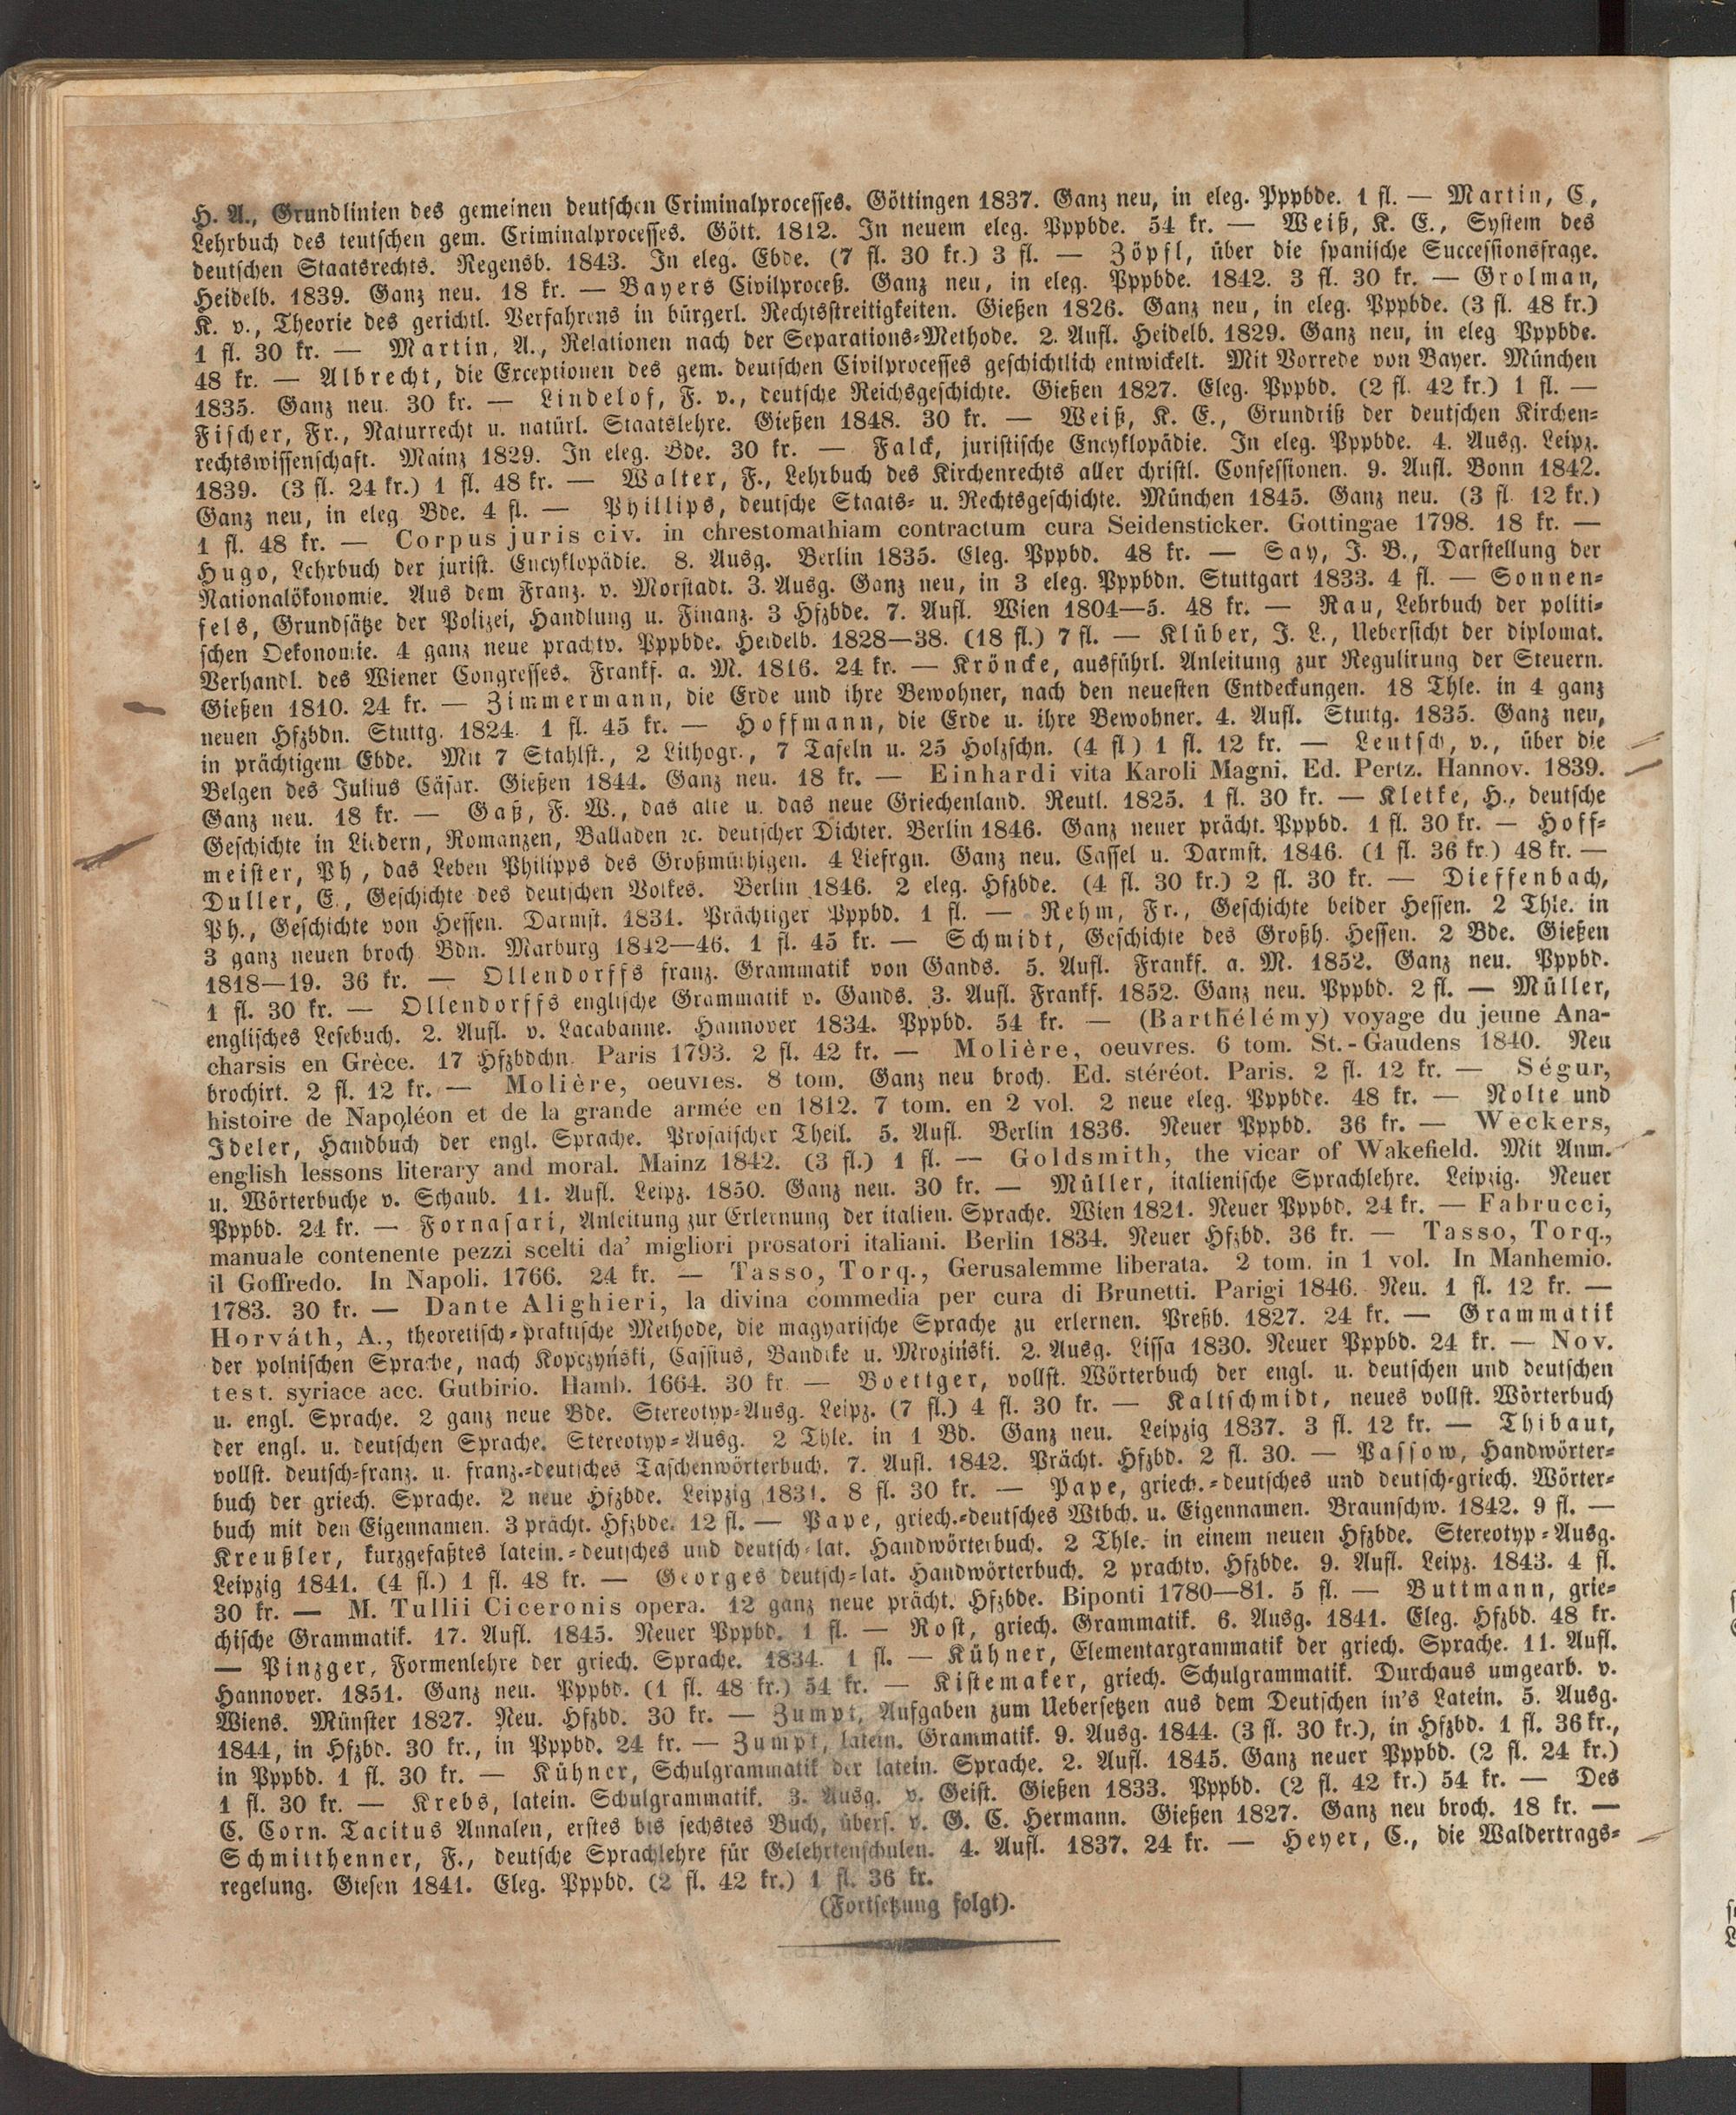 H. A., Grundlinien des gemeinen deutschen Criminalprocesses. Göttingen 1837. Ganz neu, in eleg. Pppbde. 1 fl. — Martin, C,
Lehrbuch des teutschen gem. Criminalprocesses. Gött. 1812. In neuem eleg. Pppbde. 54 kr. — Weiß, K. E., System des
deutschen Staatsrechts. Regensb. 1843. In eleg. Ebde. (7 fl. 30 kr.) 3 fl. — Zöpfl, über die spanische Successionsfrage.
Heidelb. 1839. Ganz neu. 18 kr. — Bayers Civilproceß. Ganz neu, in eleg. Pppbde. 1842. 3 fl. 30 kr. — Grolman,
K. v., Theorie des gerichtl. Verfahrens in bürgerl. Rechtsstreitigkeiten. Gießen 1826. Ganz neu, in eleg. Pppbde. (3 fl. 48 kr.)
1 fl. 30 kr. — Martin, A., Relationen nach der Separations-Methode. 2. Aufl. Heidelb. 1829. Ganz neu, in eleg Pppbde.
48 kr. — Albrecht, die Exceptionen des gem. deutschen Civilprocesses geschichtlich entwickelt. Mit Vorrede von Bayer. München
1835. Ganz neu. 30 kr. — Lindelof, F. v., deutsche Reichsgeschichte. Gießen 1827. Eleg. Pppbd. (2 fl. 42 kr.) 1 fl. —
Fischer, Fr., Naturrecht u. natürl. Staatslehre. Gießen 1848. 30 kr. — Weiß, K. E., Grundriß der deutschen Kirchen-
rechtswissenschaft. Mainz 1829. In eleg. Bde. 30 kr. — Falck, juristische Encyklopädie. In eleg. Pppbde. 4. Ausg. Leipz.
1839. (3 fl. 24 kr.) 1 fl. 48 kr. — Walter, F., Lehrbuch des Kirchenrechts aller christl. Confessionen. 9. Aufl. Bonn 1842.
Ganz neu, in eleg. Bde. 4 fl. — Phillips, deutsche Staats- u. Rechtsgeschichte. München 1845. Ganz neu. (3 fl. 12 kr.)
1 fl. 48 kr. — Corpus juris civ. in chrestomathiam contractum cura Seidensticker. Gottingae 1798. 18 kr. —
Hugo, Lehrbuch der jurist. Encyklopädie. 8. Ausg. Berlin 1835. Eleg. Pppbd. 48 kr. — Say, J. B., Darstellung der
Nationalökonomie. Aus dem Franz. v. Morstadt. 3. Ausg. Ganz neu, in 3 eleg. Pppbdn. Stuttgart 1833. 4 fl. — Sonnen-
fels, Grundsätze der Polizei, Handlung u. Finanz. 3 Hfzbde. 7. Aufl. Wien 1804—5. 48 kr. — Rau, Lehrbuch der politi-
schen Oekonomie. 4 ganz neue prachtv. Pppbde. Heidelb. 1828—38. (18 fl.) 7 fl. — Klüber, J. L., Uebersicht der diplomat.
Verhandl. des Wiener Congresses. Frankf. a. M. 1816. 24 kr. — Kröncke, ausführl. Anleitung zur Regulirung der Steuern.
Gießen 1810. 24 kr. — Zimmermann, die Erde und ihre Bewohner, nach den neuesten Entdeckungen. 18 Thle. in 4 ganz
neuen Hfzbdn. Stuttg. 1824. 1 fl. 45 kr. — Hoffmann, die Erde u. ihre Bewohner. 4. Aufl. Stuttg. 1835. Ganz neu,
in prächtigem Ebde. Mit 7 Stahlst., 2 Lithogr., 7 Tafeln u. 25 Holzschn. (4 fl) 1 fl. 12 kr. — Leutsch, v., über die
Belgen des Julius Cäsar. Gießen 1844. Ganz neu. 18 kr. — Einhardi vita Karoli Magni. Ed. Pertz. Hannov. 1839.
Ganz neu. 18 kr. — Gaß, F. W., das alte u. das neue Griechenland. Reutl. 1825. 1 fl. 30 kr. — Kletke, H., deutsche
Geschichte in Liedern, Romanzen, Balladen ꝛc. deutscher Dichter. Berlin 1846. Ganz neuer prächt. Pppbd. 1 fl. 30 kr. — Hoff-
meister, Ph, das Leben Philipps des Großmüthigen. 4 Liefrgn. Ganz neu. Cassel u. Darmst. 1846. (1 fl. 36 kr.) 48 kr. —
Duller, E., Geschichte des deutschen Volkes. Berlin 1846. 2 eleg. Hfzbde. (4 fl. 30 kr.) 2 fl. 30 kr. — Dieffenbach,
Ph., Geschichte von Hessen. Darmst. 1831. Prächtiger Pppbd. 1 fl. — Rehm, Fr., Geschichte beider Hessen. 2 Thle. in
3 ganz neuen broch. Bdn. Marburg 1842—46. 1 fl. 45 kr. — Schmidt, Geschichte des Großh. Hessen. 2 Bde. Gießen
1818—19. 36 kr. — Ollendorffs franz. Grammatik von Gands. 5. Aufl. Frankf. a. M. 1852. Ganz neu. Pppbd.
1 fl. 30 kr. — Ollendorffs englische Grammatik v. Gands. 3. Aufl. Frankf. 1852. Ganz neu. Pppbd. 2 fl. — Müller,
englisches Lesebuch. 2. Aufl. v. Lacabanne. Hannover 1834. Pppbd. 54 kr. — (Barthélémy) voyage du jeune Ana-
charsis en Grèce. 17 Hfzbdchn. Paris 1793. 2 fl. 42 kr. — Molière, oeuvres. 6 tom. St.-Gaudens 1840. Neu
brochirt. 2 fl. 12 kr. — Molière, oeuvres. 8 tom. Ganz neu broch. Ed. stéréot. Paris. 2 fl. 12 kr. — Ségur,
histoire de Napoléon et de la grande armée en 1812. 7 tom. en 2 vol. 2 neue eleg. Pppbde. 48 kr. — Nolte und
Ideler, Handbuch der engl. Sprache. Prosaischer Theil. 5. Aufl. Berlin 1836. Neuer Pppbd. 36 kr. — Weckers,
english lessons literary and moral. Mainz 1842. (3 fl.) 1 fl. — Goldsmith, the vicar of Wakefield. Mit Anm.
u. Wörterbuche v. Schaub. 11. Aufl. Leipz. 1850. Ganz neu. 30 kr. — Müller, italienische Sprachlehre. Leipzig. Neuer
Pppbd. 24 kr. — Fornasari, Anleitung zur Erlernung der italien. Sprache. Wien 1821. Neuer Pppbd. 24 kr. — Fabrucci,
manuale contenente pezzi scelti da' migliori prosatori italiani. Berlin 1834. Neuer Hfzbd. 36 kr. — Tasso, Torq.,
il Goffredo. In Napoli. 1766. 24 kr. — Tasso, Torq., Gerusalemme liberata. 2 tom. in 1 vol. In Manhemio.
1783. 30 kr. — Dante Alighieri, la divina commedia per cura di Brunetti. Parigi 1846. Neu. 1 fl. 12 kr. —
Horváth, A., theoretisch-praktische Methode, die magyarische Sprache zu erlernen. Preßb. 1827. 24 kr. — Grammatik
der polnischen Sprache, nach Kopczyński, Cassius, Bandtke u. Mroziński. 2. Ausg. Lissa 1830. Neuer Pppbd. 24 kr. — Nov.
test. syriace acc. Gutbirio. Hamb. 1664. 30 kr. — Boettger, vollst. Wörterbuch der engl. u. deutschen und deutschen
u. engl. Sprache. 2 ganz neue Bde. Stereotyp-Ausg. Leipz. (7 fl.) 4 fl. 30 kr. — Kaltschmidt, neues vollst. Wörterbuch
der engl. u. deutschen Sprache. Stereotyp-Ausg. 2 Thle. in 1 Bd. Ganz neu. Leipzig 1837. 3 fl. 12 kr. — Thibaut,
vollst. deutsch-franz. u. franz.-deutsches Taschenwörterbuch. 7. Aufl. 1842. Prächt. Hfzbd. 2 fl. 30. — Passow, Handwörter-
buch der griech. Sprache. 2 neue Hfzbde. Leipzig 1831. 8 fl. 30 kr. — Pape, griech.-deutsches und deutsch-griech. Wörter-
buch mit den Eigennamen. 3 prächt. Hfzbde. 12 fl. — Pape, griech.-deutsches Wtbch. u. Eigennamen. Braunschw. 1842. 9 fl. —
Kreußler, kurzgefaßtes latein.-deutsches und deutsch-lat. Handwörterbuch. 2 Thle. in einem neuen Hfzbde. Stereotyp-Ausg.
Leipzig 1841. (4 fl.) 1 fl. 48 kr. — Georges deutsch-lat. Handwörterbuch. 2 prachtv. Hfzbde. 9. Aufl. Leipz. 1843. 4 fl.
30 kr. — M. Tullii Ciceronis opera. 12 ganz neue prächt. Hfzbde. Biponti 1780—81. 5 fl. — Buttmann, grie-
chische Grammatik. 17. Aufl. 1845. Neuer Pppbd. 1 fl. — Rost, griech. Grammatik. 6. Ausg. 1841. Eleg. Hfzbd. 48 kr.
— Pinzger, Formenlehre der griech. Sprache. 1834. 1 fl. — Kühner, Elementargrammatik der griech. Sprache. 11. Aufl.
Hannover. 1851. Ganz neu. Pppbd. (1 fl. 48 kr.) 54 kr. — Kistemaker, griech. Schulgrammatik. Durchaus umgearb. v.
Wiens. Münster 1827. Neu. Hfzbd. 30 kr. — Zumpt, Aufgaben zum Uebersetzen aus dem Deutschen in's Latein. 5. Ausg.
1844, in Hfzbd. 30 kr., in Pppbd. 24 kr. — Zumpt, latein. Grammatik. 9. Ausg. 1844. (3 fl. 30 kr.), in Hfzbd. 1 fl. 36 kr.,
in Pppbd. 1 fl. 30 kr. — Kühner, Schulgrammatik der latein. Sprache. 2. Aufl. 1845. Ganz neuer Pppbd. (2 fl. 24 kr.)
1 fl. 30 kr. — Krebs, latein. Schulgrammatik. 3. Ausg. v. Geist. Gießen 1833. Pppbd. (2 fl. 42 kr.) 54 kr. — Des
C. Corn. Tacitus Annalen, erstes bis sechstes Buch, übers. v. G. C. Hermann. Gießen 1827. Ganz neu broch. 18 kr. —
Schmitthenner, F., deutsche Sprachlehre für Gelehrtenschulen. 4. Aufl. 1837. 24 kr. — Heyer, C., die Waldertrags-
regelung. Giesen 1841. Eleg. Pppbd. (2 fl. 42 kr.) 1 fl. 36 kr.
(Fortsetzung folgt).